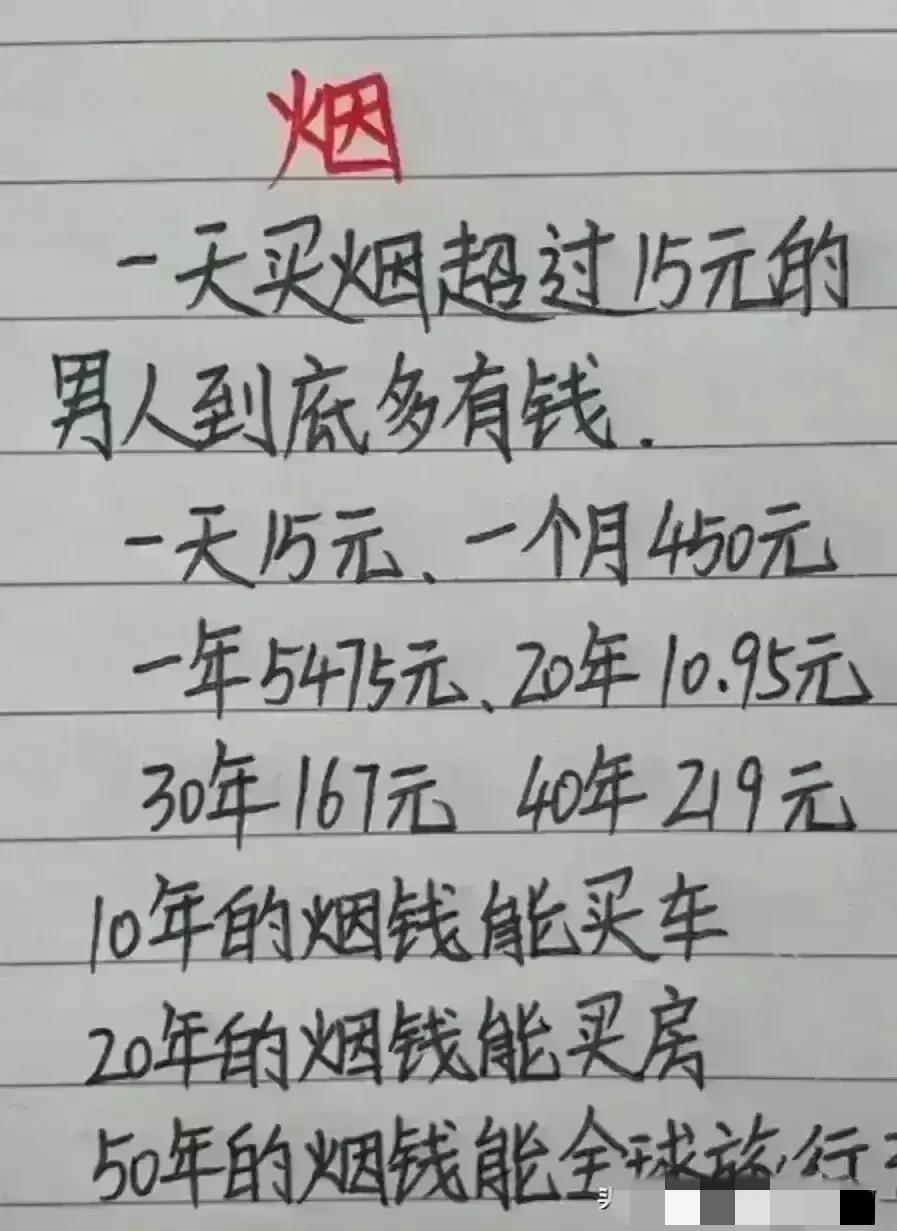 烟
一天买烟超过15元的
男人到底多有钱.
一天15元、一个月450元
一年5475元、20年10.95元
30年167元 40年219元
10年的烟钱能买车
20年的烟钱能买房
50年的烟钱能全球旅行